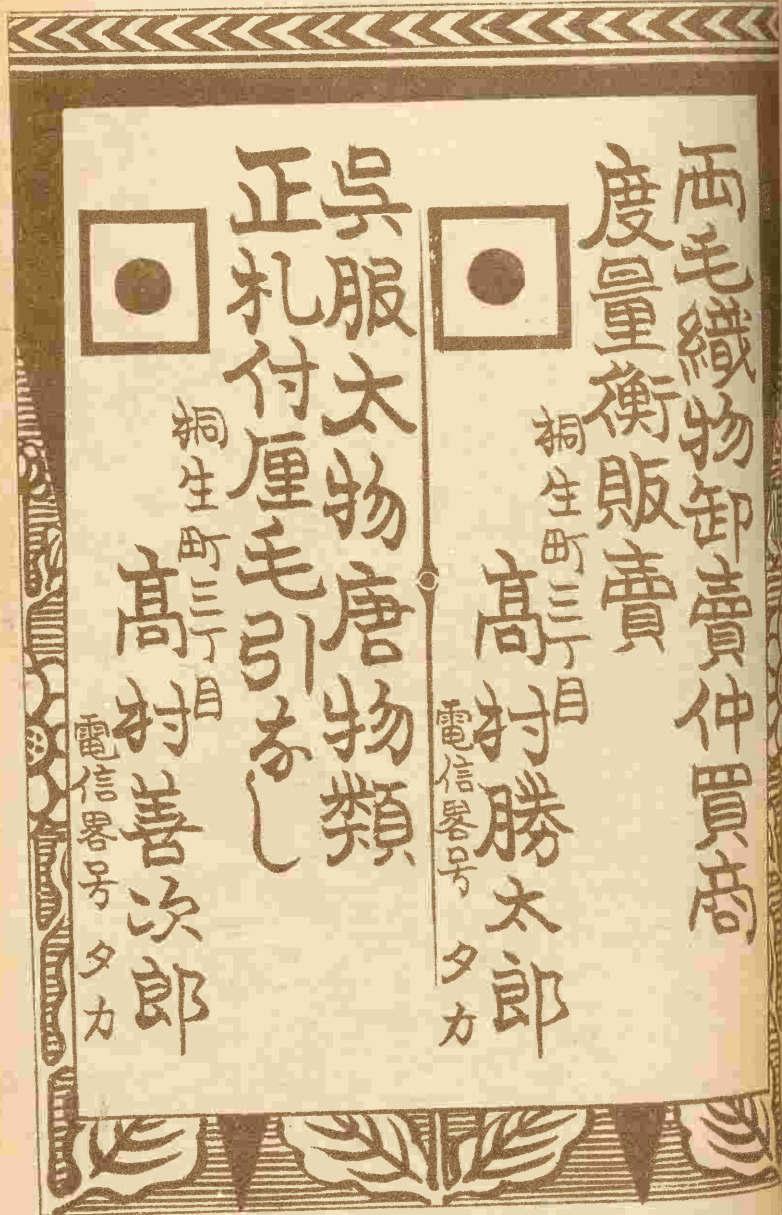 両毛織物卸賣仲買商
度量衡販賣
桐生町三丁目
髙村勝太郎
電信畧号 タカ
呉服太物唐物類
正札付厘毛引なし
桐生町三丁目
髙村善次郎
電信畧号 タカ